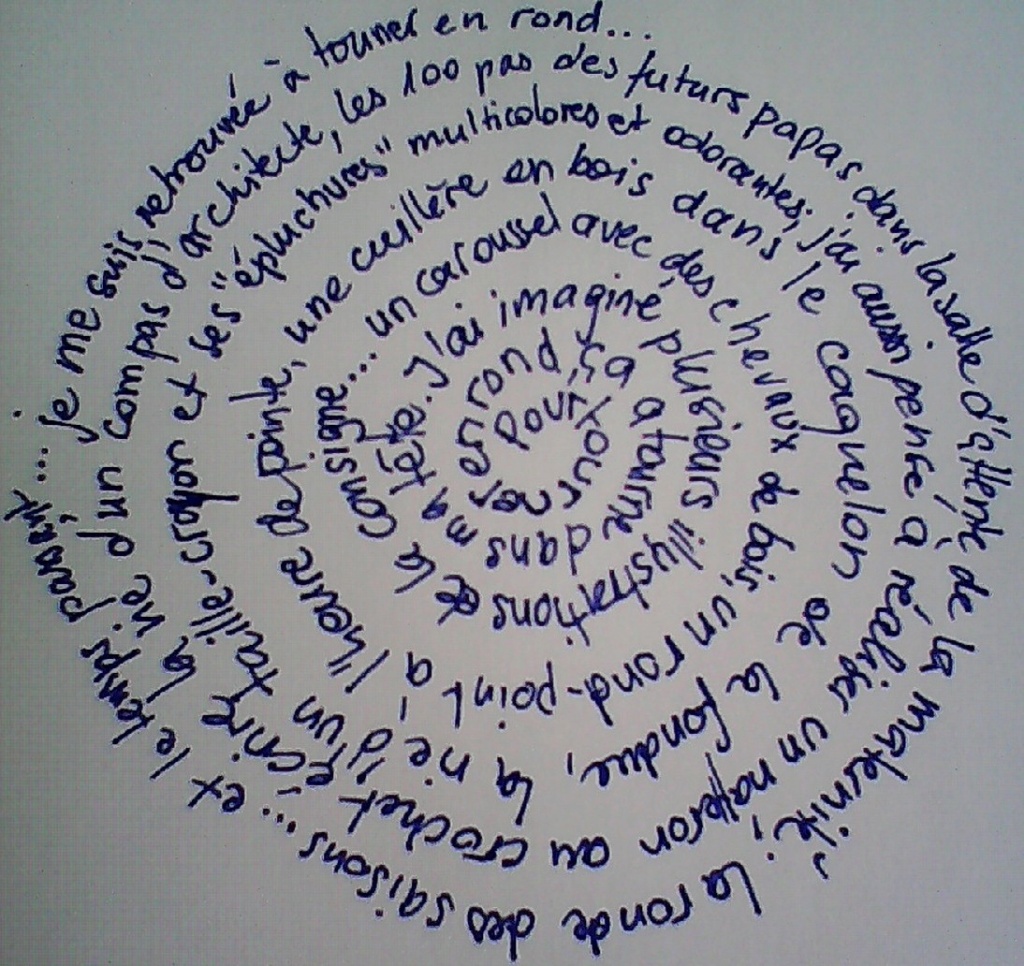 Pour tourner en rond, ça a tourné dans ma tête. J'ai imaginé plusieurs illustrations de la consigne... un caroussel avec des chevaux de bois, un rond-point à l'heure de pointe, une cuillère en bois dans le caquelon de la fondue, la vie d'un taille-crayon et ses "épluchures" multicolores et odorantes; j'ai aussi pensé à réaliser un naperon au crochet, écrire la vie d'un compas d'architecte, les 100 pas des futurs papas dans la salle d'attente de la maternité; la ronde des saisons... et le temps passant... je me suis retrouvée à tourner en rond...